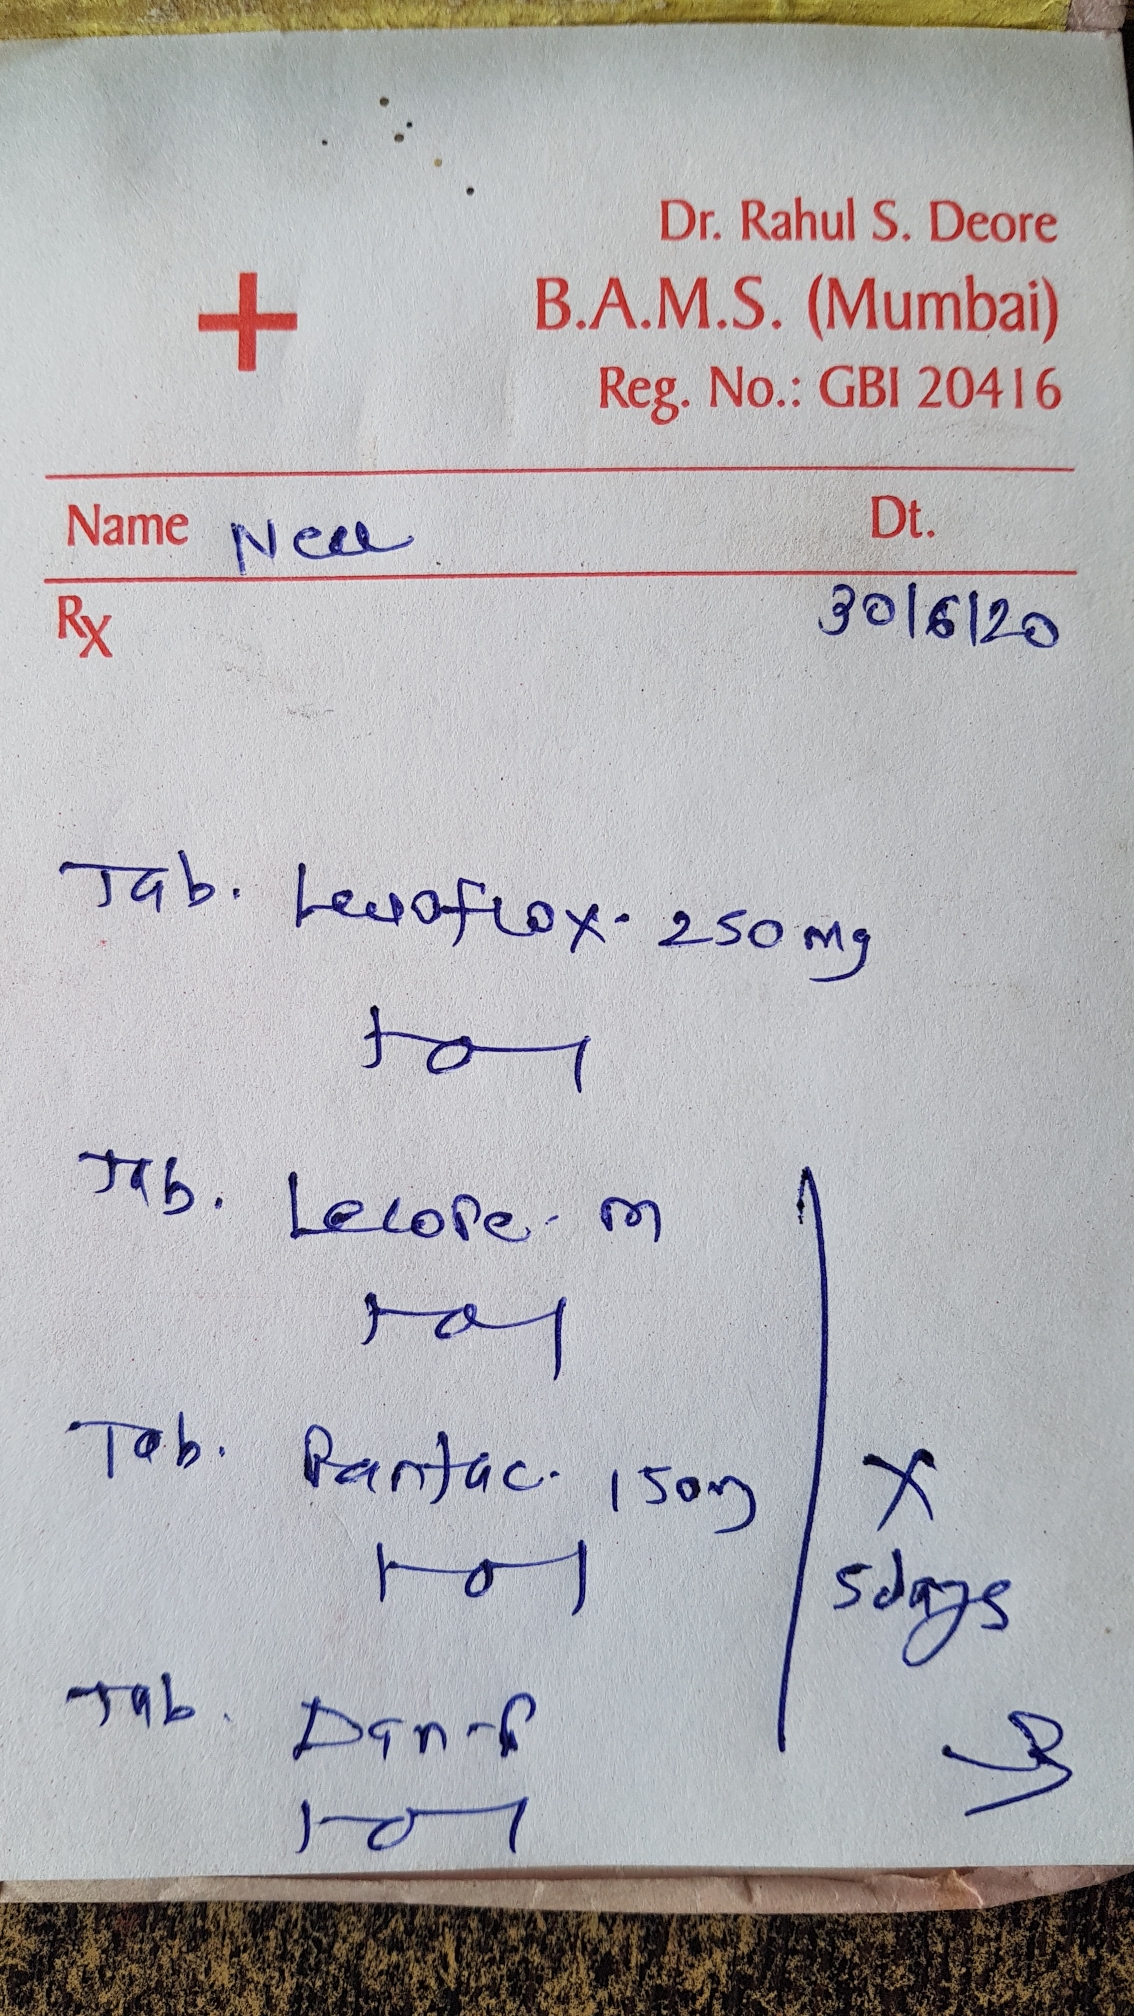 Dr. Rahul S. Deore
B.A.M.S. (Mumbai)
Reg. No.: GBI 20416
Name
Dt.
Rx
30/6/20
Tab. Levoflox. 250 mg
1-0-1
Tab. Lecope - m
1-0-1
Tab. Rantac. 150 mg
1-0-1
X
5 days
Tab. Dan-P
1-0-1